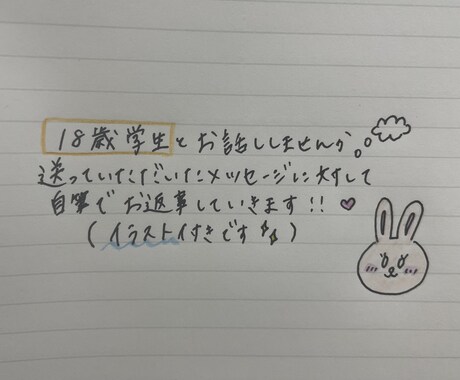 18歳学生とお話ししませんか
送っていただいたメッセージに対して
自筆でお返事していきます!!
(イラスト付きです)